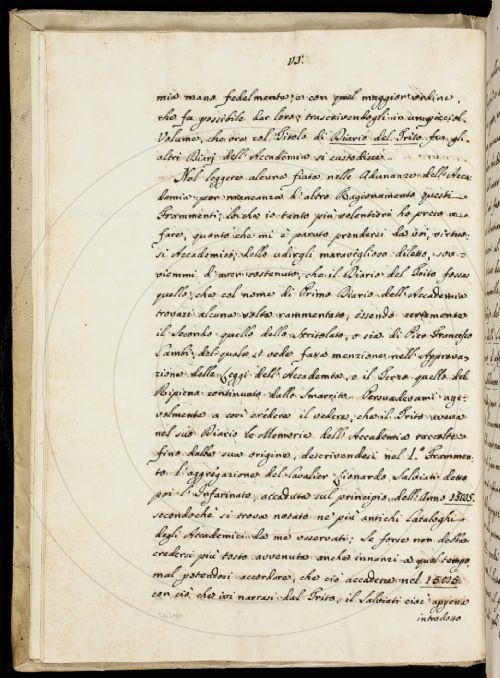 VI.
mia mano fedelmente, e con quel maggior ordine,
che fu possibile dar loro; trascrivendogli in un picciol
Volume, che ora col Titolo di Diario del Trito fra gli
altri Diarj dell'Accademia si custodisce.
Nel leggere alcune fiate nelle Adunanze dell'Acca
demia per mancanza d'altro Ragionamento questi
Frammenti; lo che io tanto più volentieri ho preso a
fare, quanto che mi è paruto prendersi da voi, virtuo
si Accademici, dello udirgli maraviglioso diletto, sov=
viemmi d'aver sostenuto, che il Diario del Trito fosse
quello, che col nome di Primo Diario dell'Accademia
trovasi alcuna volta rammentato, essendo certamente
il Secondo quello dello Stritolato, o sia di Pier Francesco
Cambi; del quale si vede fare menzione nell'Approva=
zione delle Leggi dell'Accademia, e il Terzo quello del
Ripieno continuato dallo Smarrito. Persuadevami age=
volmente a così credere il vedere, che il Trito aveva
nel suo Diario le Memorie dell'Accademia raccolte
fino dalla sua origine, descrivendosi nel 1.º Frammen=
to l'aggregazione del Cavalier Lionardo Salviati detto
poi l'Infarinato, accaduta sul principio dell'Anno 1585.
secondochè si trova notato ne' più antichi Cataloghi
degli Accademici da me osservati; Se forse non debba
credersi più tosto avvenuta anche innanzi a quel tempo,
mal potendosi accordare, che ciò accadesse nel 1585.
con ciò che ivi narrasi dal Trito, il Salviati cioè appena
introdotto